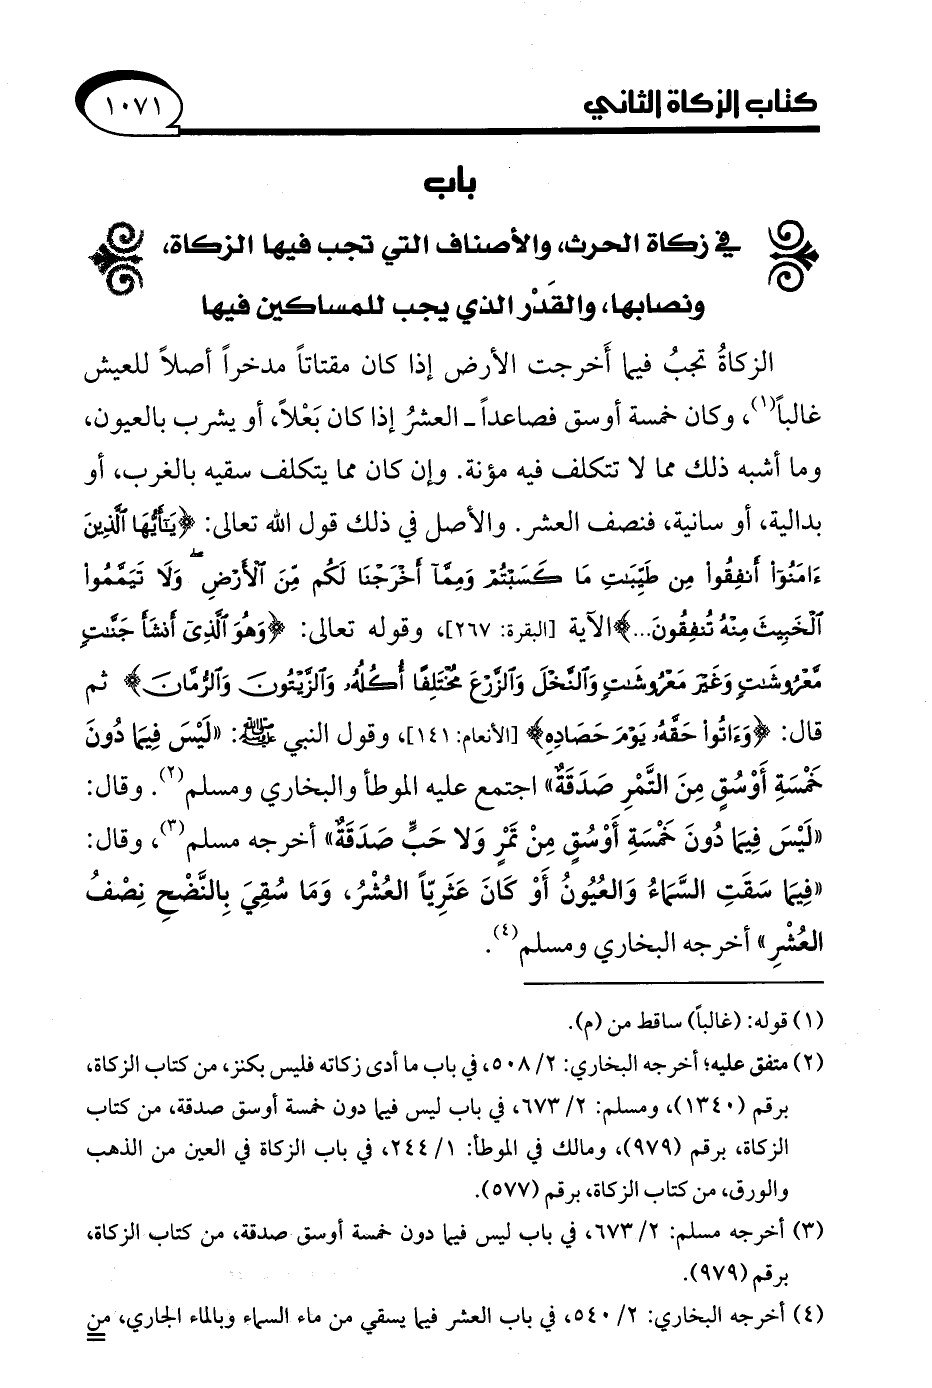 كتاب الزكاة الثاني
١٠٧١
باب
في زكاة الحرث، والأصناف التي تجب فيها الزكاة،
ونصابها، والقَدْر الذي يجب للمساكين فيها
الزكاةُ تجبُ فيما أَخرجت الأرض إذا كان مقتاتاً مدخراً أصلاً للعيش
غالباً(١)، وكان خمسة أوسق فصاعداً ـ العشرُ إذا كان بَعْلاً، أو يشرب بالعيون،
وما أشبه ذلك مما لا تتكلف فيه مؤنة. وإن كان مما يتكلف سقيه بالغرب، أو
بدالية، أو سانية، فنصف العشر. والأصل في ذلك قول الله تعالى: ﴿يَٰٓأَيُّهَا ٱلَّذِينَ
ءَامَنُوٓا۟ أَنفِقُوا۟ مِن طَيِّبَٰتِ مَا كَسَبْتُمْ وَمِمَّآ أَخْرَجْنَا لَكُم مِّنَ ٱلْأَرْضِ ۖ وَلَا تَيَمَّمُوا۟
ٱلْخَبِيثَ مِنْهُ تُنفِقُونَ...﴾الآية [البقرة: ٢٦٧]، وقوله تعالى: ﴿وَهُوَ ٱلَّذِىٓ أَنشَأَ جَنَّٰتٍ
مَّعْرُوشَٰتٍ وَغَيْرَ مَعْرُوشَٰتٍ وَٱلنَّخْلَ وَٱلزَّرْعَ مُخْتَلِفًا أُكُلُهُۥ وَٱلزَّيْتُونَ وَٱلرُّمَّانَ﴾ ثم
قال: ﴿وَءَاتُوا۟ حَقَّهُۥ يَوْمَ حَصَادِهِۦ﴾ [الأنعام: ١٤١]، وقول النبي ﷺ: «لَيْسَ فِيمَا دُونَ
خَمْسَةِ أَوْسُقٍ مِنَ التَّمْرِ صَدَقَةٌ» اجتمع عليه الموطأ والبخاري ومسلم(٢). وقال:
«لَيْسَ فِيمَا دُونَ خَمْسَةِ أَوْسُقٍ مِنْ تَمْرٍ وَلا حَبٍّ صَدَقَةٌ» أخرجه مسلم(٣)، وقال:
«فِيمَا سَقَتِ السَّمَاءُ وَالعُيُونُ أَوْ كَانَ عَثَرِيّاً العُشْرُ، وَمَا سُقِيَ بِالنَّضْحِ نِصْفُ
العُشْرِ» أخرجه البخاري ومسلم(٤).
(١) قوله: (غالباً) ساقط من (م).
(٢) متفق عليه؛ أخرجه البخاري: ٢/ ٥٠٨، في باب ما أدى زكاته فليس بكنز، من كتاب الزكاة،
برقم (١٣٤٠)، ومسلم: ٢/ ٦٧٣، في باب ليس فيما دون خمسة أوسق صدقة، من كتاب
الزكاة، برقم (٩٧٩)، ومالك في الموطأ: ١/ ٢٤٤، في باب الزكاة في العين من الذهب
والورق، من كتاب الزكاة، برقم (٥٧٧).
(٣) أخرجه مسلم: ٢/ ٦٧٣، في باب ليس فيما دون خمسة أوسق صدقة، من كتاب الزكاة،
برقم (٩٧٩).
(٤) أخرجه البخاري: ٢/ ٥٤٠، في باب العشر فيما يسقي من ماء السماء وبالماء الجاري، من